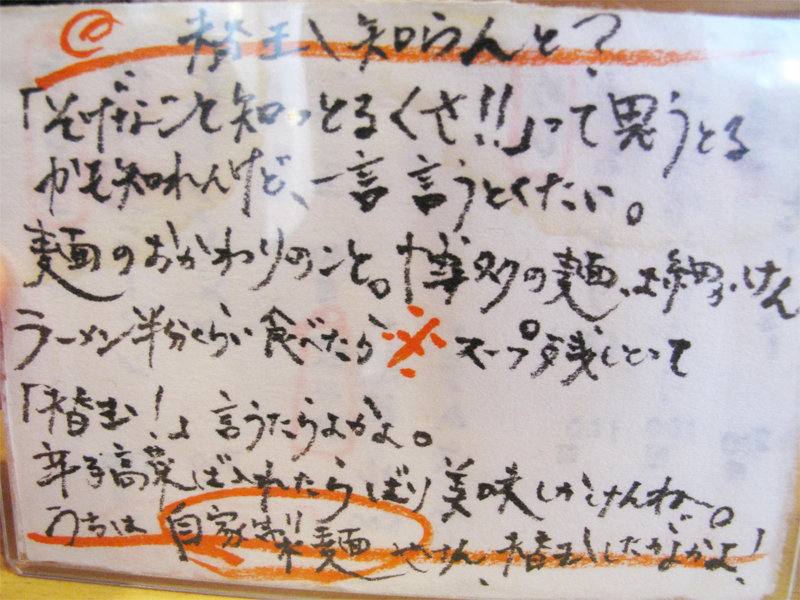 替玉、知らんと?
「そげなこと知っとるくさ!!」って思うとる
かも知れんけど、一言言うとくたい。
麺のおかわりのこと。博多の麺は細かけん
ラーメン半分くらい食べたら※スープ残しとって
「替玉!」言うたらよかよ。
辛子高菜ば入れたらばり美味しかけんね〜。
うちは自家製麺やけん、替玉したがよかよ!